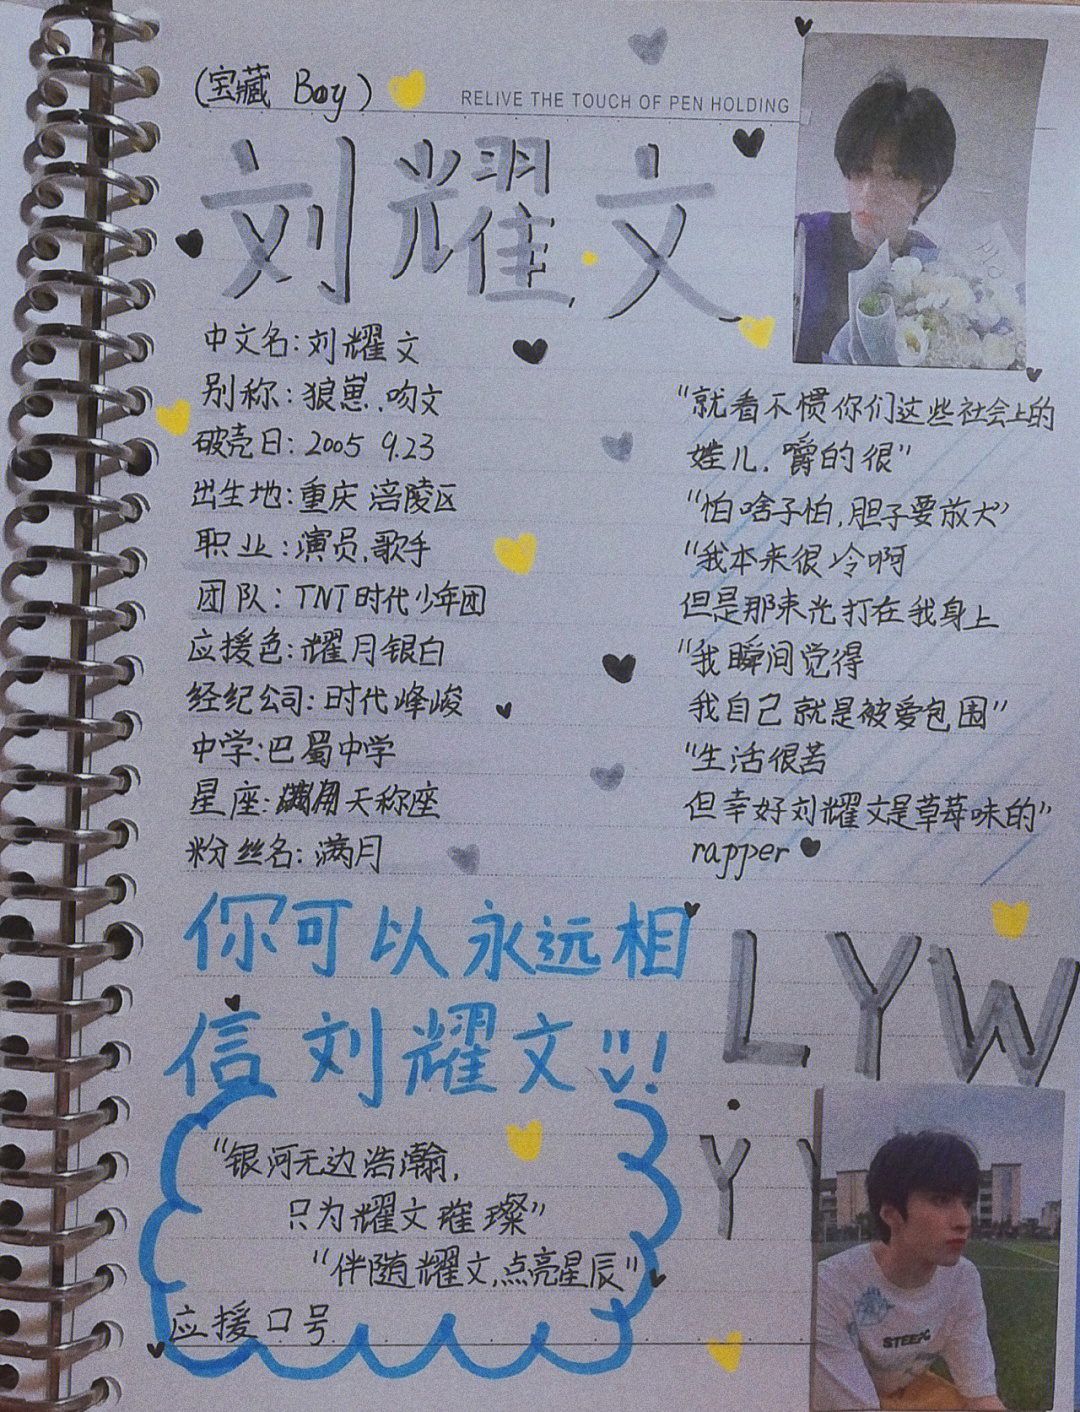 (宝藏 Boy)
RELIVE THE TOUCH OF PEN HOLDING
刘耀文
中文名:刘耀文
别称:狼崽.吻文
破壳日:2005 9.23
出生地:重庆 涪陵区
职业:演员.歌手
团队:TNT时代少年团
应援色:耀月银白
经纪公司:时代峰峻
中学:巴蜀中学
星座:天称座
粉丝名:满月
"就看不惯你们这些社会上的
娃儿,嚼的很"
"怕啥子怕,胆子要放大"
"我本来很冷啊
但是那束光打在我身上
"我瞬间觉得
我自己就是被爱包围"
"生活很苦
但幸好刘耀文是草莓味的"
rapper
你可以永远相
信刘耀文!
LYW
Y
"银河无边浩瀚,
只为耀文璀璨"
"伴随耀文,点亮星辰"
应援口号